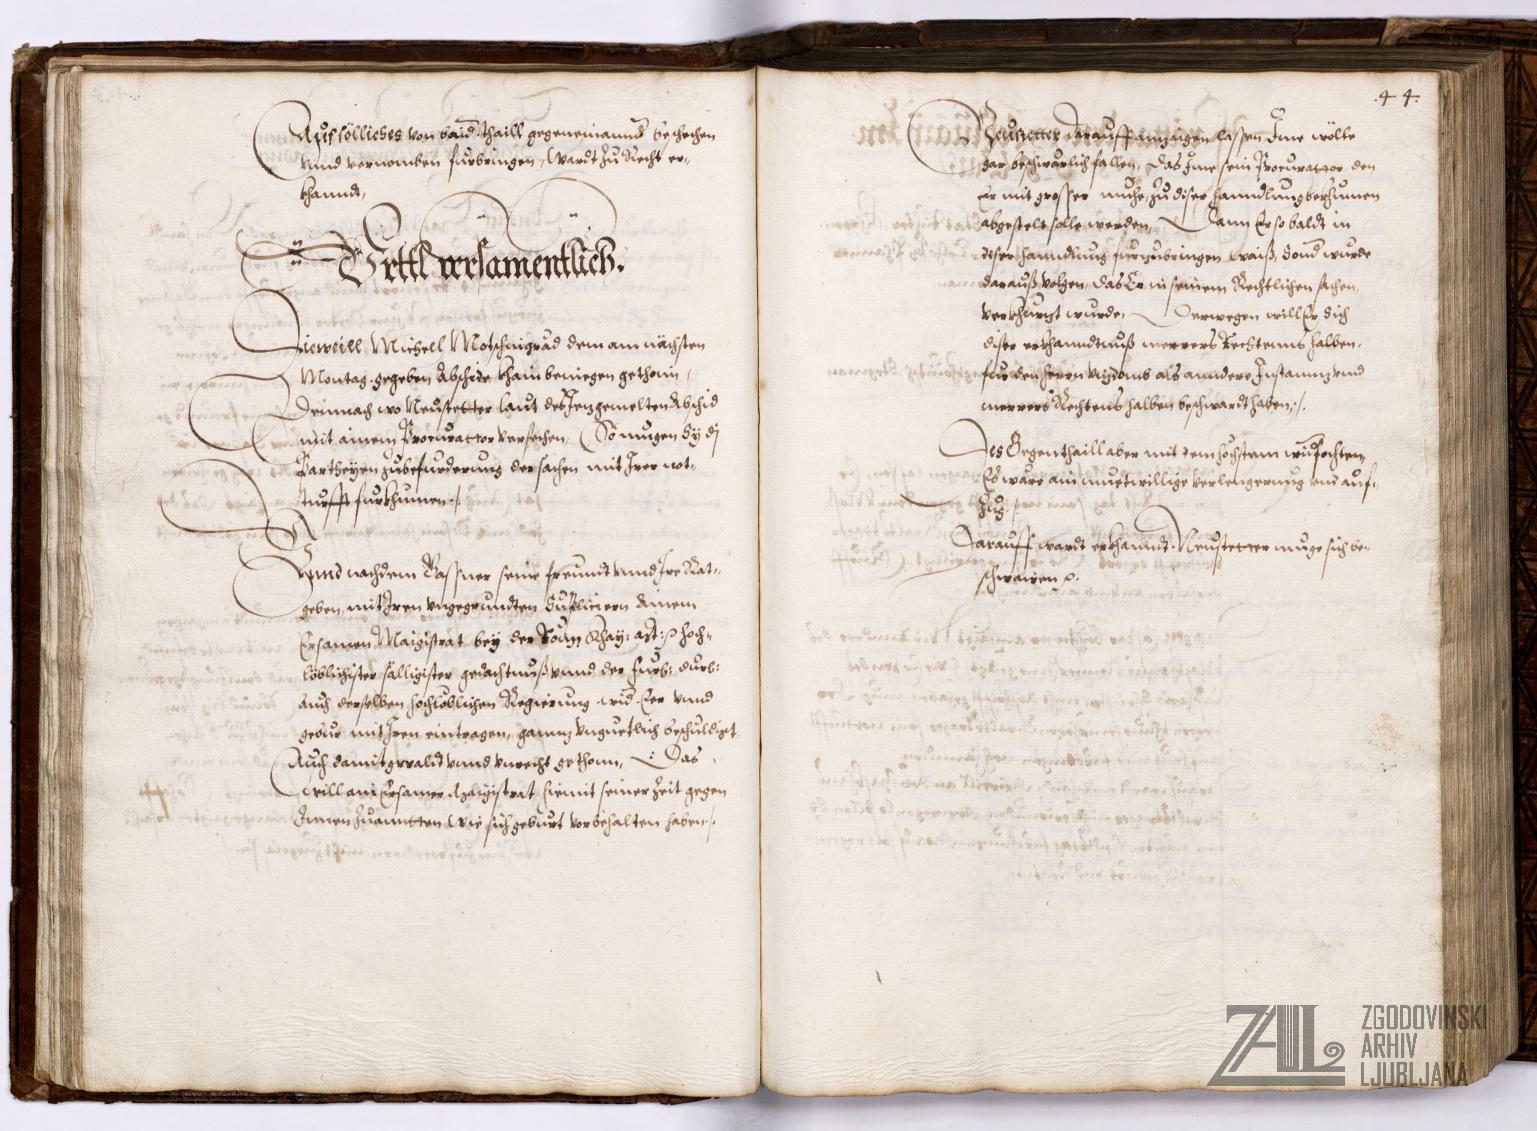 Auf söllliches von baid thaill gegeneinannd beschechen
vnnd vernomben furbringen, Wardt zu Recht er-
khanndt,
Zü Vrttl versamentlich.
Dieweill Michell Motschnigrad dem am nächsten
Montag gegeben Abschidt khain beniegen gethonn,
Demnach wo Neustetter laut des Jenzgemelten Abschid
mit ainem Procurattor versechen, So mugen Sy di
Partheyen zubefurderung der sachen mit Irer not-
turfft furkhumen ./.
Vnnd nachdem Passner seine freundt vnnd Ire Rat-
geben, mit Iren vngegrundten Supliciern Ainem
Ersamen Maigistrat bey der Röm: Khay: &c. hoch-
löblichister sälligister gedachtnuß vnnd der furst: durh:
Auch derselben hochloblichen Regierung wid Eer vnnd
gebur mit Iren eintragen, gannz vnguetlich beschuldigt
Auch damit gewaldt vnnd vnrecht gethonn, Das
will ain Ersamer Magistrat hiemit seiner Zeit gegen
Innen zuanntten Wie sich geburt vorbehalten haben ./.
.44.
Neustetter darauff anzaigen lassen, Ime wölle
gar beschwarlich fallen, Das Ime sein Procurattor den
Er mit grosser muche zu diser hanndlung bekhumen
abgestelt solle werden, Dann Er so baldt in
diser hanndlung furzubringen waiß, Sond wurde
darauß volgen, das Er in seinem Rechtlichen sachen,
verkhurzt wurde, Derwegen will Er sich
diser erkhanndtnuß merrers Rechtenns halben,
fur den herrn vizdomb als anndere Instannz vnd
merrers Rechtens halben beschwardt haben ./.
Des Gegenthaill aber mit dem höchsten widfochten,
Es ware ain muetwillige verlengerung vnd auf-
zug ./.
Darauff wardt erkhanndt, Neustetter muge sich be-
schwären &c.
ZAL ZGODOVINSKI
ARHIV
LJUBLJANA